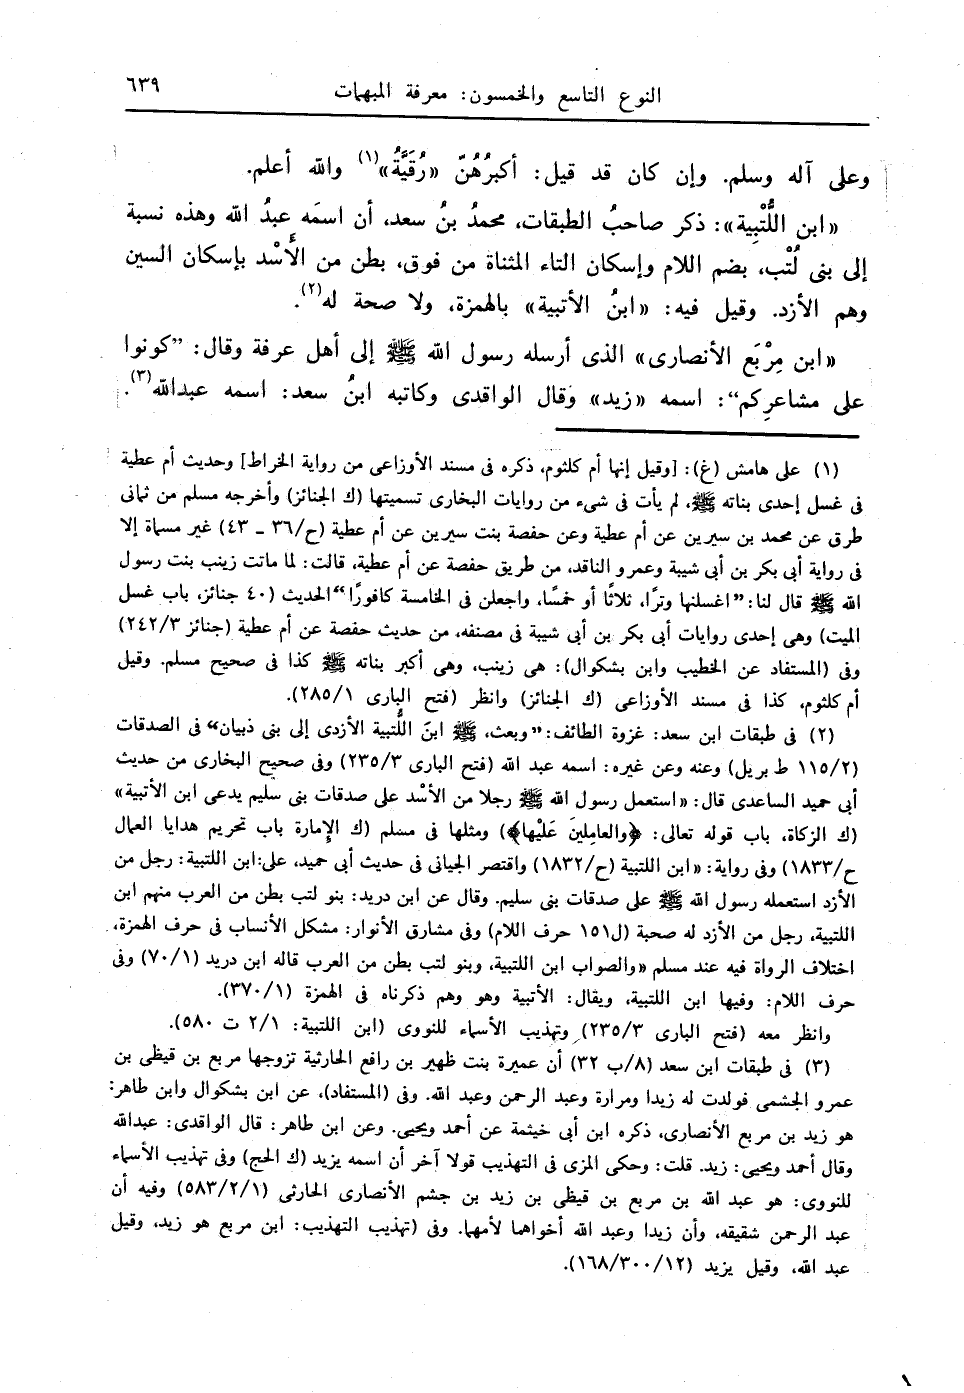 ٦٣٩
النوع التاسع والخمسون: معرفة المبهمات
وعلى آله وسلم. وإن كان قد قيل: أكبرُهُنّ «رُقَيَّةُ»(١) والله أعلم.
«ابن اللُّتْبِية»: ذكر صاحبُ الطبقات، محمدُ بنُ سعد، أن اسمَه عبدُ الله وهذه نسبة
إلى بنى لُتْب، بضم اللام وإسكان التاء المثناة من فوق، بطن من الأَسْد بإسكان السين
وهم الأزد. وقيل فيه: «ابنُ الأتبية» بالهمزة، ولا صحة له(٢).
«ابن مِرْبَع الأنصارى» الذى أرسله رسول الله ﷺ إلى أهل عرفة وقال: ”كونوا
على مشاعرِكم“: اسمه «زيد» وَقال الواقدى وكاتبه ابنُ سعد: اسمه عبدالله(٣).
(١) على هامش (غ): [وقيل إنها أم كلثوم، ذكره فى مسند الأوزاعى من رواية الخراط] وحديث أم عطية
فى غسل إحدى بناته ﷺ، لم يأت فى شىء من روايات البخارى تسميتها (ك الجنائز) وأخرجه مسلم من ثمانى
طرق عن محمد بن سيرين عن أم عطية وعن حفصة بنت سيرين عن أم عطية (ح/٣٦ ـ ٤٣) غير مسماة إلا
فى رواية أبى بكر بن أبى شيبة وعمرو الناقد، من طريق حفصة عن أم عطية، قالت: لما ماتت زينب بنت رسول
الله ﷺ قال لنا: ”اغسلنها وترًا، ثلاثًا أو خمسًا، واجعلن فى الخامسة كافورًا“ الحديث (٤٠ جنائز، باب غسل
الميت) وهى إحدى روايات أبى بكر بن أبى شيبة فى مصنفه، من حديث حفصة عن أم عطية (جنائز ٢٤٢/٣)
وفى (المستفاد عن الخطيب وابن بشكوال): هى زينب، وهى أكبر بناته ﷺ كذا فى صحيح مسلم. وقيل
أم كلثوم، كذا فى مسند الأوزاعى (ك الجنائز) وانظر (فتح البارى ٢٨٥/١).
(٢) فى طبقات ابن سعد: غزوة الطائف: ”وبعث، ﷺ ابنَ اللُّتبية الأزدى إلى بنى ذبيان“ فى الصدقات
(١١٥/٢ ط بريل) وعنه وعن غيره: اسمه عبد الله (فتح البارى ٢٣٥/٣) وفى صحيح البخارى من حديث
أبى حميد الساعدى قال: «استعمل رسول الله ﷺ رجلا من الأسْد على صدقات بنى سليم يدعى ابن الأتبية»
(ك الزكاة، باب قوله تعالى: ﴿والعامِلِينَ عَلَيْها﴾) ومثلها فى مسلم (ك الإمارة باب تحريم هدايا العمال
ح/١٨٣٣) وفى رواية: «ابن اللتبية (ح/١٨٣٢) واقتصر الجيانى فى حديث أبى حميد، على: ابن اللتبية: رجل من
الأزد استعمله رسول الله ﷺ على صدقات بنى سليم. وقال عن ابن دريد: بنو لتب بطن من العرب منهم ابن
اللتبية، رجل من الأزد له صحبة (ل١٥١ حرف اللام) وفى مشارق الأنوار: مشكل الأنساب فى حرف الهمزة،
اختلاف الرواة فيه عند مسلم «والصواب ابن اللتبية، وبنو لتب بطن من العرب قاله ابن دريد (٧٠/١) وفى
حرف اللام: وفيها ابن اللتبية، ويقال: الأتبية وهو وهم ذكرناه فى الهمزة (٣٧٠/١).
وانظر معه (فتح البارى ٢٣٥/٣) وتهذيب الأسماء للنووى (ابن اللتبية: ٢/١ ت ٥٨٠).
(٣) فى طبقات ابن سعد (٨/ب ٣٢) أن عميرة بنت ظهير بن رافع الحارثية تزوجها مربع بن قيظى بن
عمرو الجشمى فولدت له زيدا ومرارة وعبد الرحمن وعبد الله. وفى (المستفاد)، عن ابن بشكوال وابن طاهر:
هو زيد بن مربع الأنصارى، ذكره ابن أبى خيثمة عن أحمد ويحيى. وعن ابن طاهر: قال الواقدى: عبدالله
وقال أحمد ويحيى: زيد. قلت: وحكى المزى فى التهذيب قولا آخر أن اسمه يزيد (ك الحج) وفى تهذيب الأسماء
للنووى: هو عبد الله بن مربع بن قيظى بن زيد بن جشم الأنصارى الحارثى (٥٨٣/٢/١) وفيه أن
عبد الرحمن شقيقه، وأن زيدا وعبد الله أخواهما لأمهما. وفى (تهذيب التهذيب: ابن مربع هو زيد، وقيل
عبد الله، وقيل يزيد (١٦٨/٣٠٠/١٢).